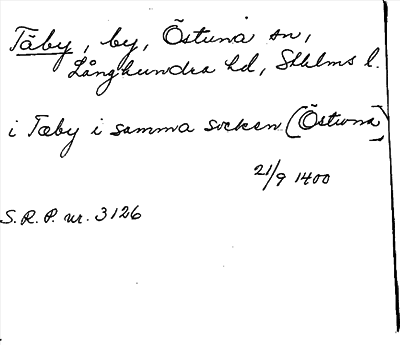 Täby, by, Östuna sn,
Långhundra hd, Sthlms l.
i Tæby i samma socken (Östuna)
21/9 1400
S.R.P. nr. 3126